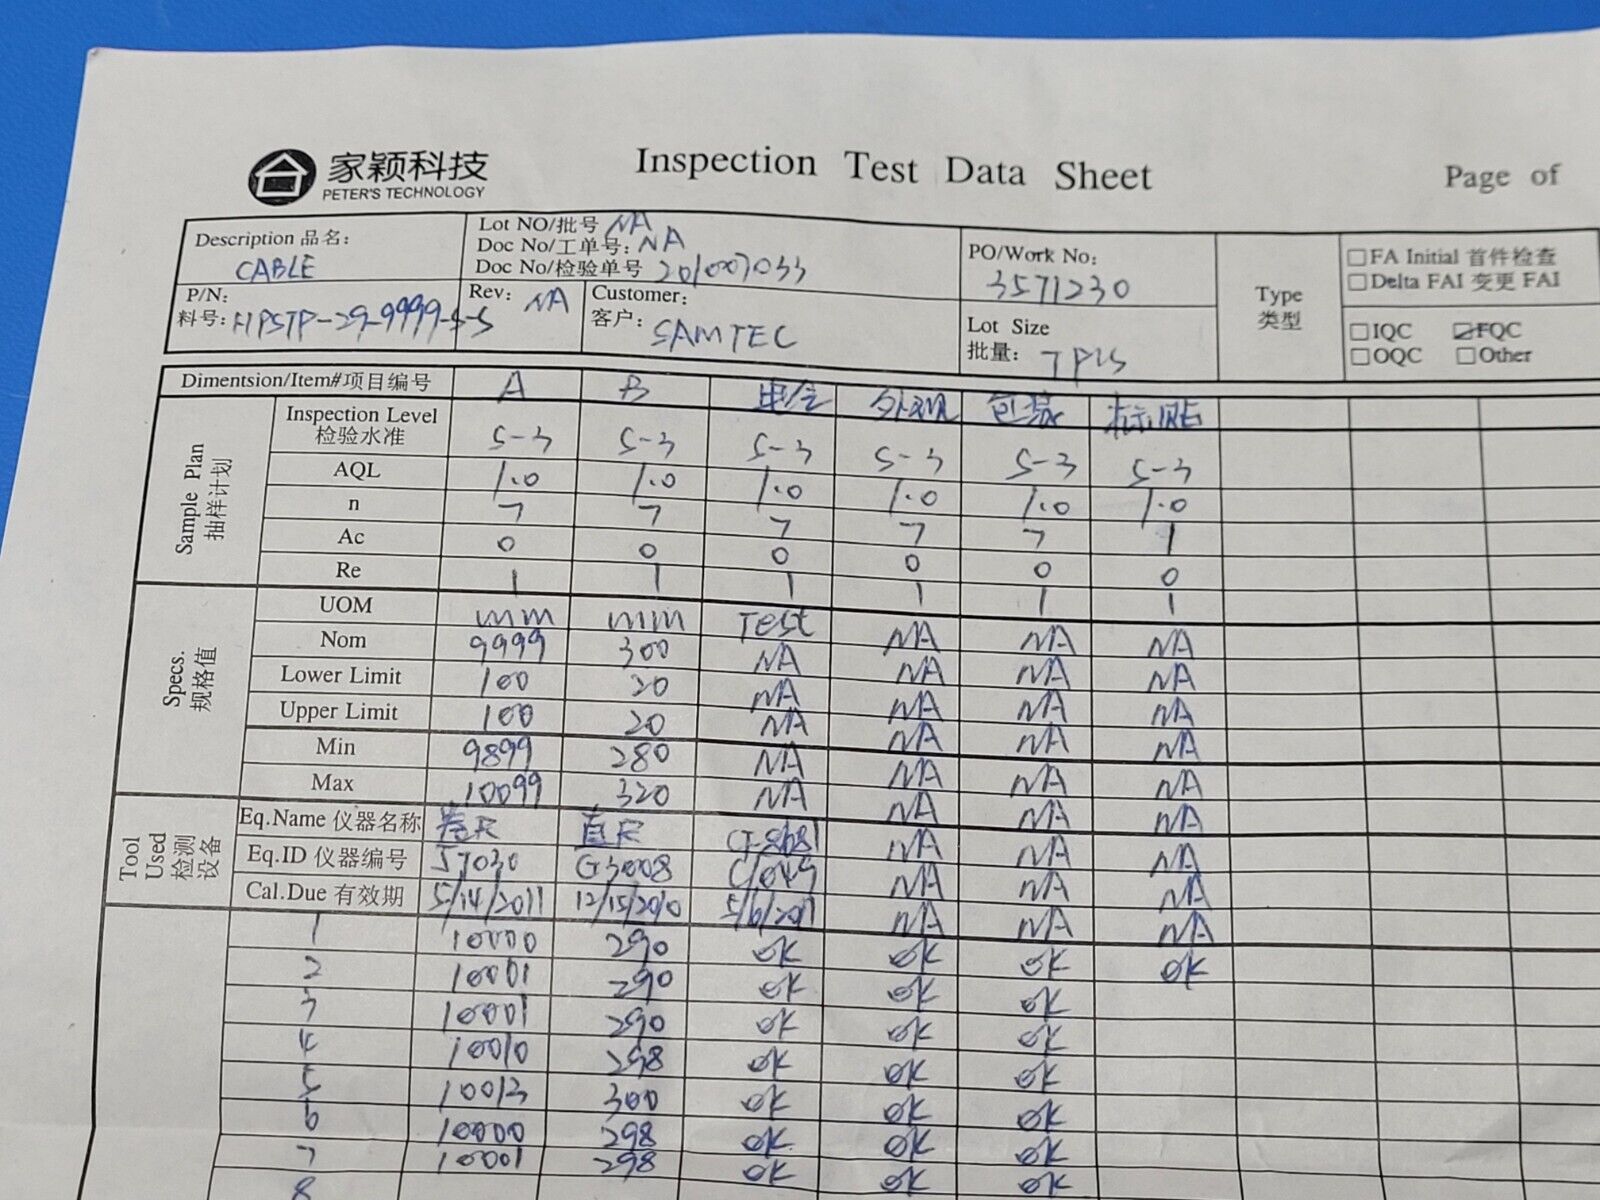 家颖科技
PETER'S TECHNOLOGY
Inspection Test Data Sheet
Page of
Description 品名:
CABLE
Lot NO/批号 NA
Doc No/工单号: NA
Doc No/检验单号 201007033
PO/Work No:
3571230
Type
类型
□FA Initial 首件检查
□Delta FAI 变更 FAI
P/N:
料号: -29-9999-S-S
Rev: NA
Customer:
客户: SAMTEC
Lot Size
批量: 7PCS
□IQC ☑FQC
□OQC □Other
Dimentsion/Item#项目编号 A B 电气 外观 包装 标贴
Sample Plan
抽样计划
Inspection Level
检验水准 S-3 S-3 S-3 S-3 S-3 S-3
AQL 1.0 1.0 1.0 1.0 1.0 1.0
n 7 7 7 7 7 1
Ac 0 0 0 0 0 0
Re 1 1 1 1 1 1
Specs.
规格值
UOM mm mm Test NA NA NA
Nom 9999 300 NA NA NA NA
Lower Limit 100 20 NA NA NA NA
Upper Limit 100 20 NA NA NA NA
Min 9899 280 NA NA NA NA
Max 10099 320 NA NA NA NA
Tool
Used
检测
设备
Eq.Name 仪器名称 卷尺 直尺 CT-8681 NA NA NA
Eq.ID 仪器编号 J7030 G3008 C1045 NA NA NA
Cal.Due 有效期 5/14/2011 12/15/2010 5/6/2011 NA NA NA
1 10000 290 OK OK OK OK
2 10001 290 OK OK OK
3 10001 290 OK OK OK
4 10010 298 OK OK OK
5 10013 300 OK OK OK
6 10000 298 OK OK OK
7 10001 298 OK OK OK
8